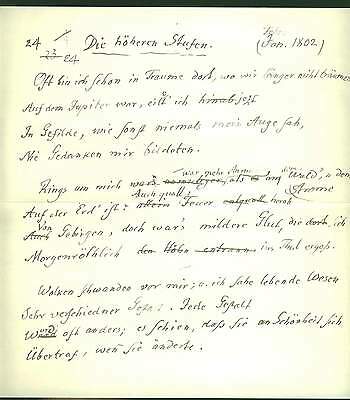 24
23 24
Die höheren Stufen.
(Jan. 1802)
Oft bin ich schon in Traume dort, wo wir länger nicht träumen.
Auf dem Jupiter war, eilt' ich hinab jetzt
In Gefilde, wie sonst niemals mein Auge sah,
Nie Gedanken mir bildeten.
war, mehr Anm
Rings um mich am Wald', u dem
Auch quall Anme
Auf der Erd' ist? Feuer
Von Gebirgen, doch war's mildere Glut, die dort, ich
Morgenröthlich ins Thal ergoß.
Wolken schwanden vor mir; u. ich sahe lebende Wesen
Sehr verschiedner Gest. Jede Gestalt
Wurd' oft anders; es schien, daß sie an Schönheit sich
Übertraf, wen sie änderte.